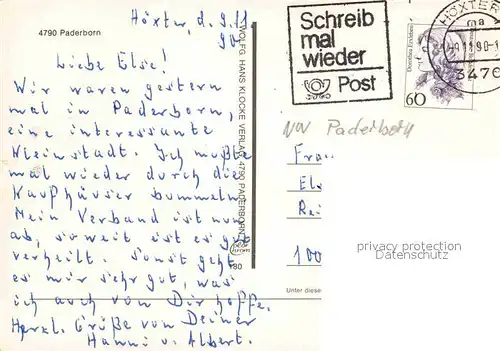 4790 Paderborn
Höxter, d. 9.11
90
Liebe Else!
Wir waren gestern
mal in Paderborn,
eine interessante
Kleinstadt. Ich mußte
mal wieder durch die
Kaufhäuser bummeln.
Mein Verband ist nun
ab, soweit ist es gut
verheilt. Sonst geht
es mir sehr gut, was
ich auch von Dir hoffe.
Herzl. Grüße von Deiner
Hanni u. Albert.
WOLFG. HANS KLOCKE VERLAG, 4790 PADERBORN
80
Schreib
mal
wieder
Post
HÖXTER
ma
3470
60
Paderborn
Frau
Els
Rei
100
privacy protection
Datenschutz
Unter diese